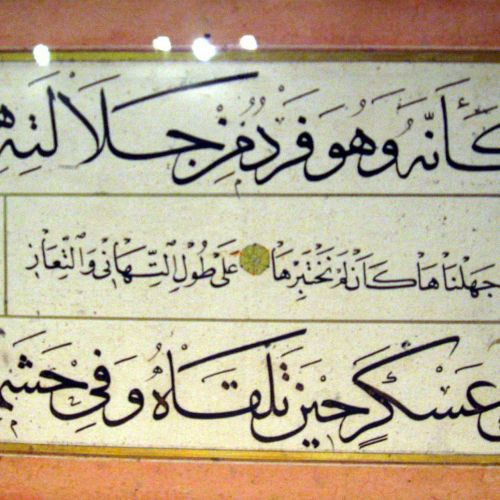 كَأَنَّهُ وَهُوَ فَرْدٌ مِنْ جَلَالَتِهِ
جَهِلْنَاهَا كَأَنْ لَمْ نَخْتَبِرْهَا عَلَى طُولِ التَّهَانِي وَالتَّعَازِي
عَسْكَرٍ حِينَ تَلْقَاهُ وَفِي حَشَمِ